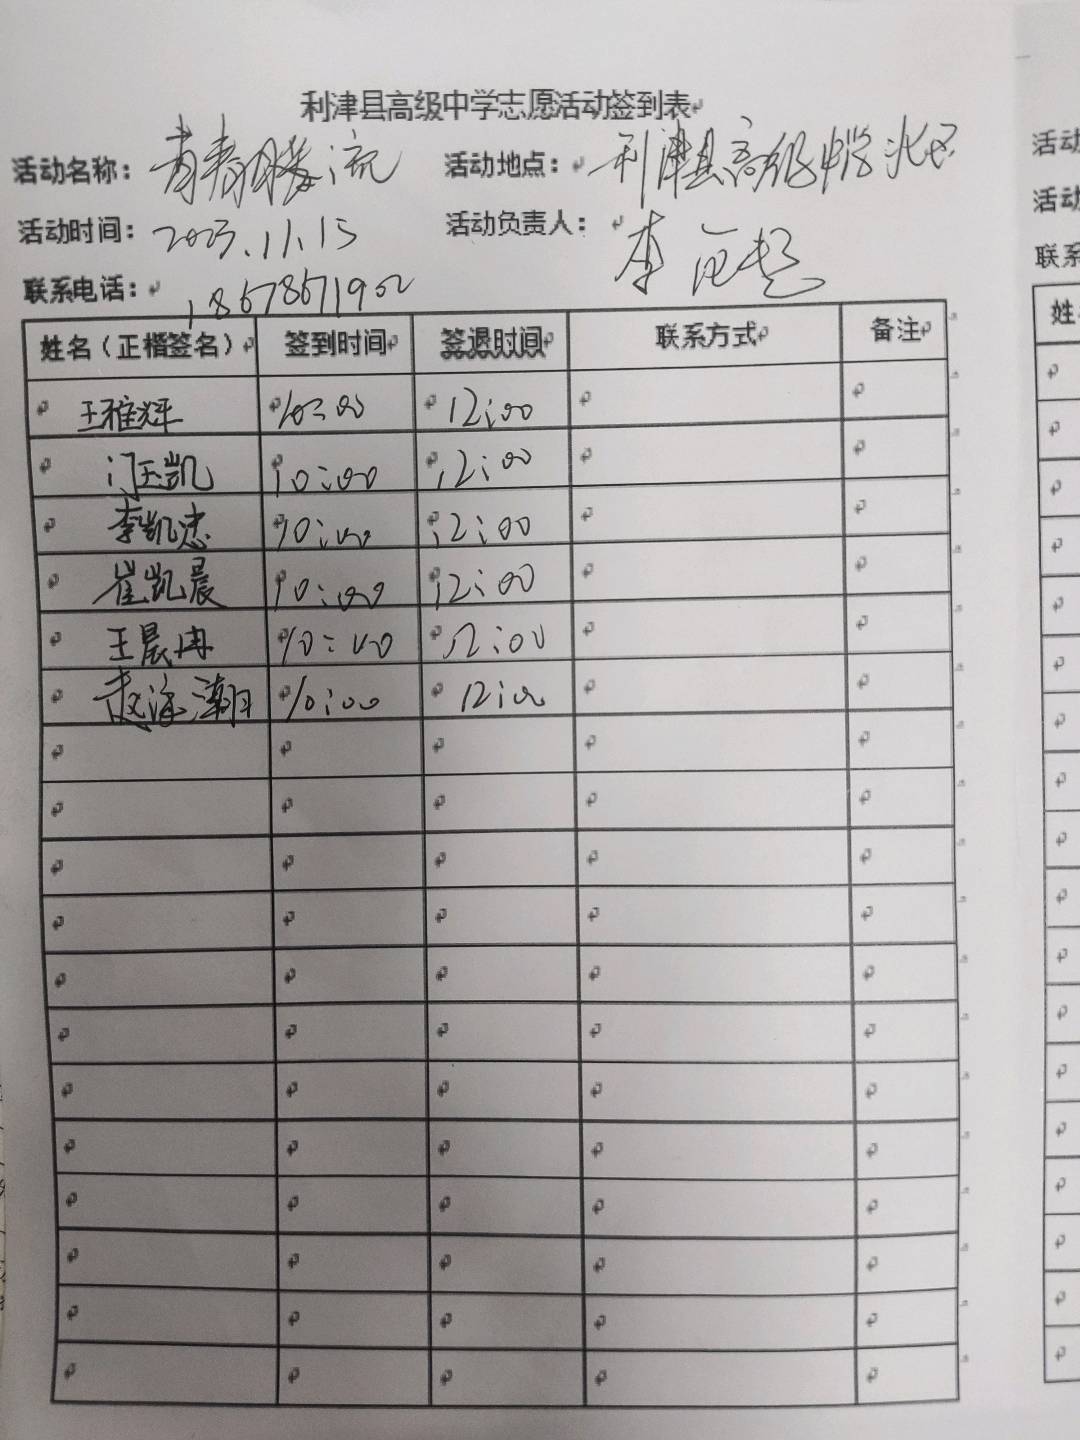 利津县高级中学志愿活动签到表
活动名称： 青春暖流 活动地点： 利津县高级中学北区
活动时间： 2023.11.13 活动负责人： 李
联系电话： 18678671902
姓名（正楷签名） 签到时间 签退时间 联系方式 备注
王雅辉 10:00 12:00
门玉凯 10:00 12:00
李凯忠 10:00 12:00
崔凯晨 10:00 12:00
王晨冉 10:00 12:00
赵泽潮 10:00 12:00
活动
活动
联系
姓